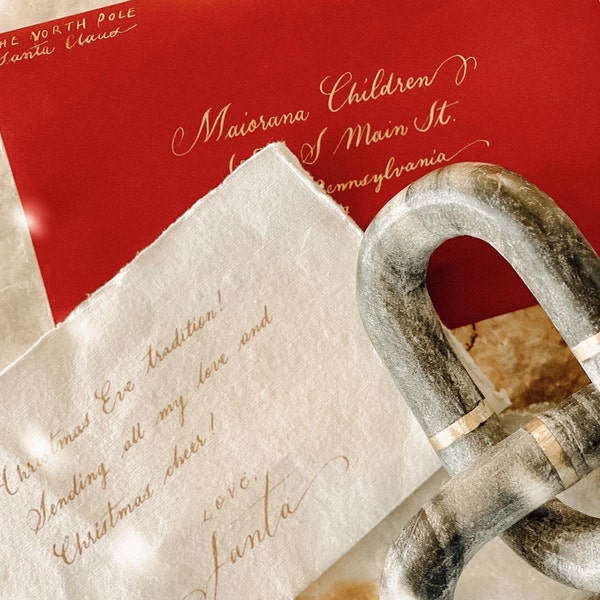 THE NORTH POLE
Santa Claus
Maiorana Children
S Main St.
Pennsylvania
Christmas Eve tradition!
Sending all my love and
Christmas cheer!
LOVE,
Santa